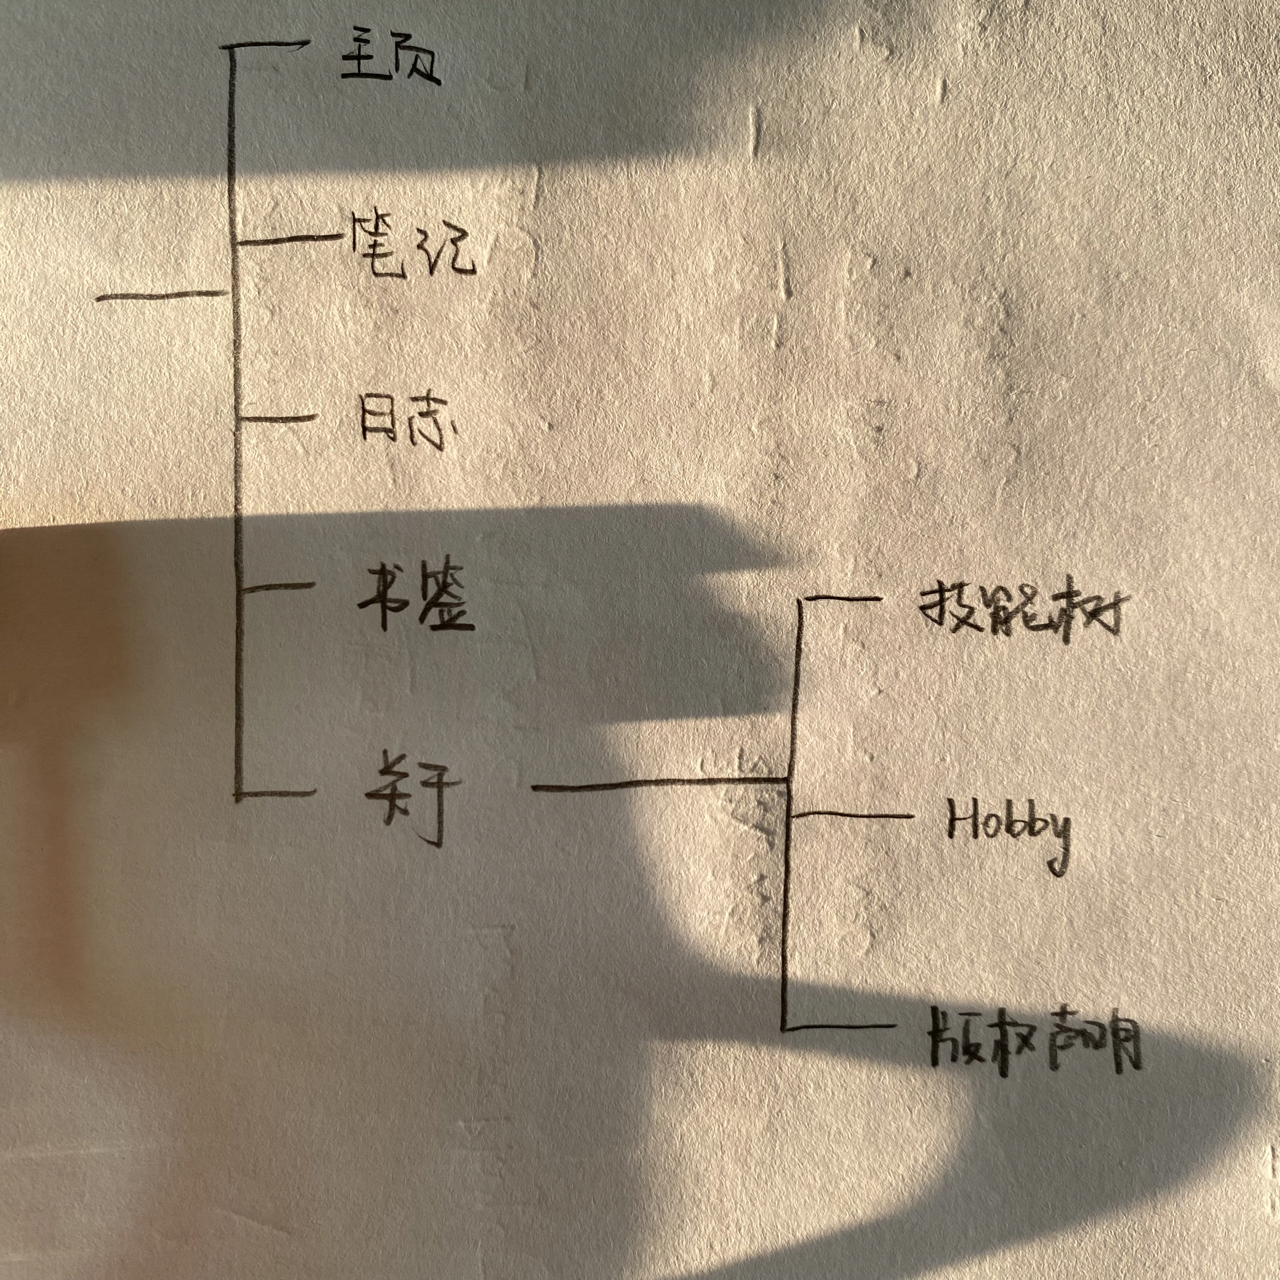 主页
笔记
日志
书签
关于
技能树
Hobby
版权声明